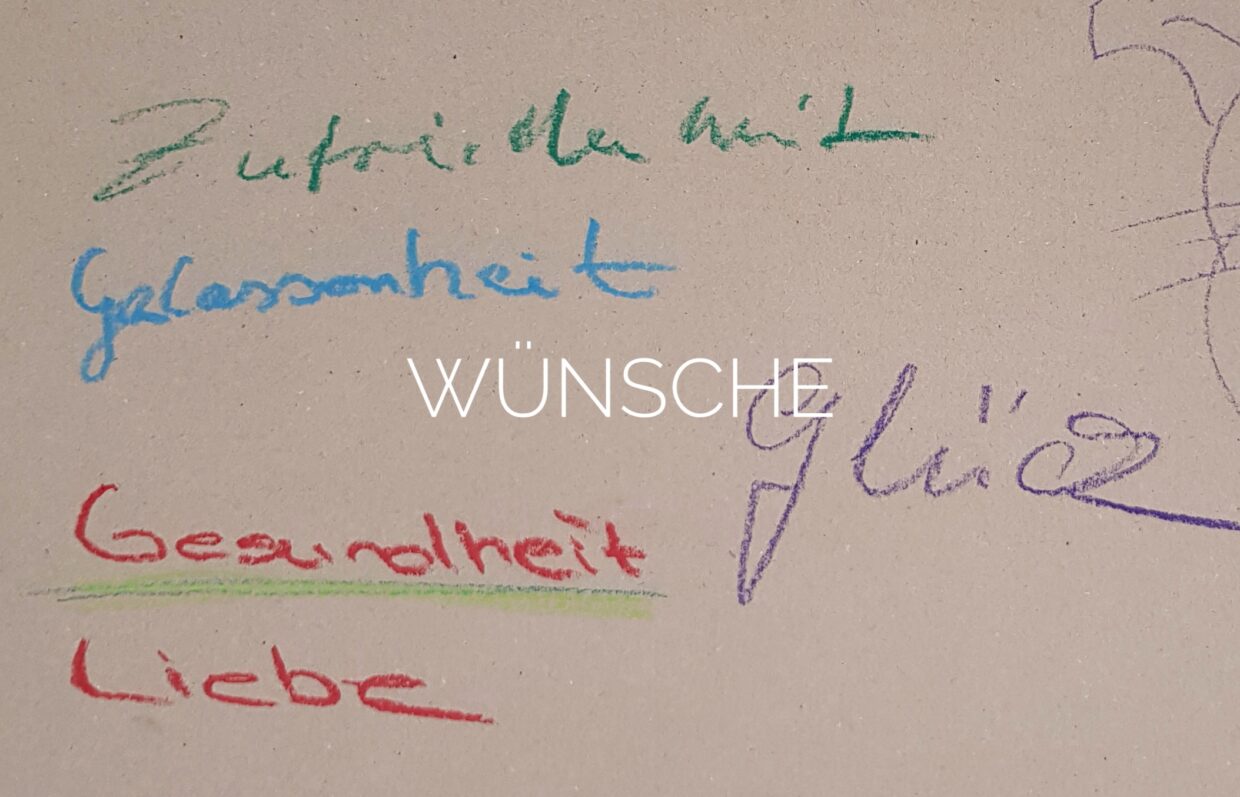 Zufriedenheit
Gelassenheit
WÜNSCHE
Glück
Gesundheit
Liebe